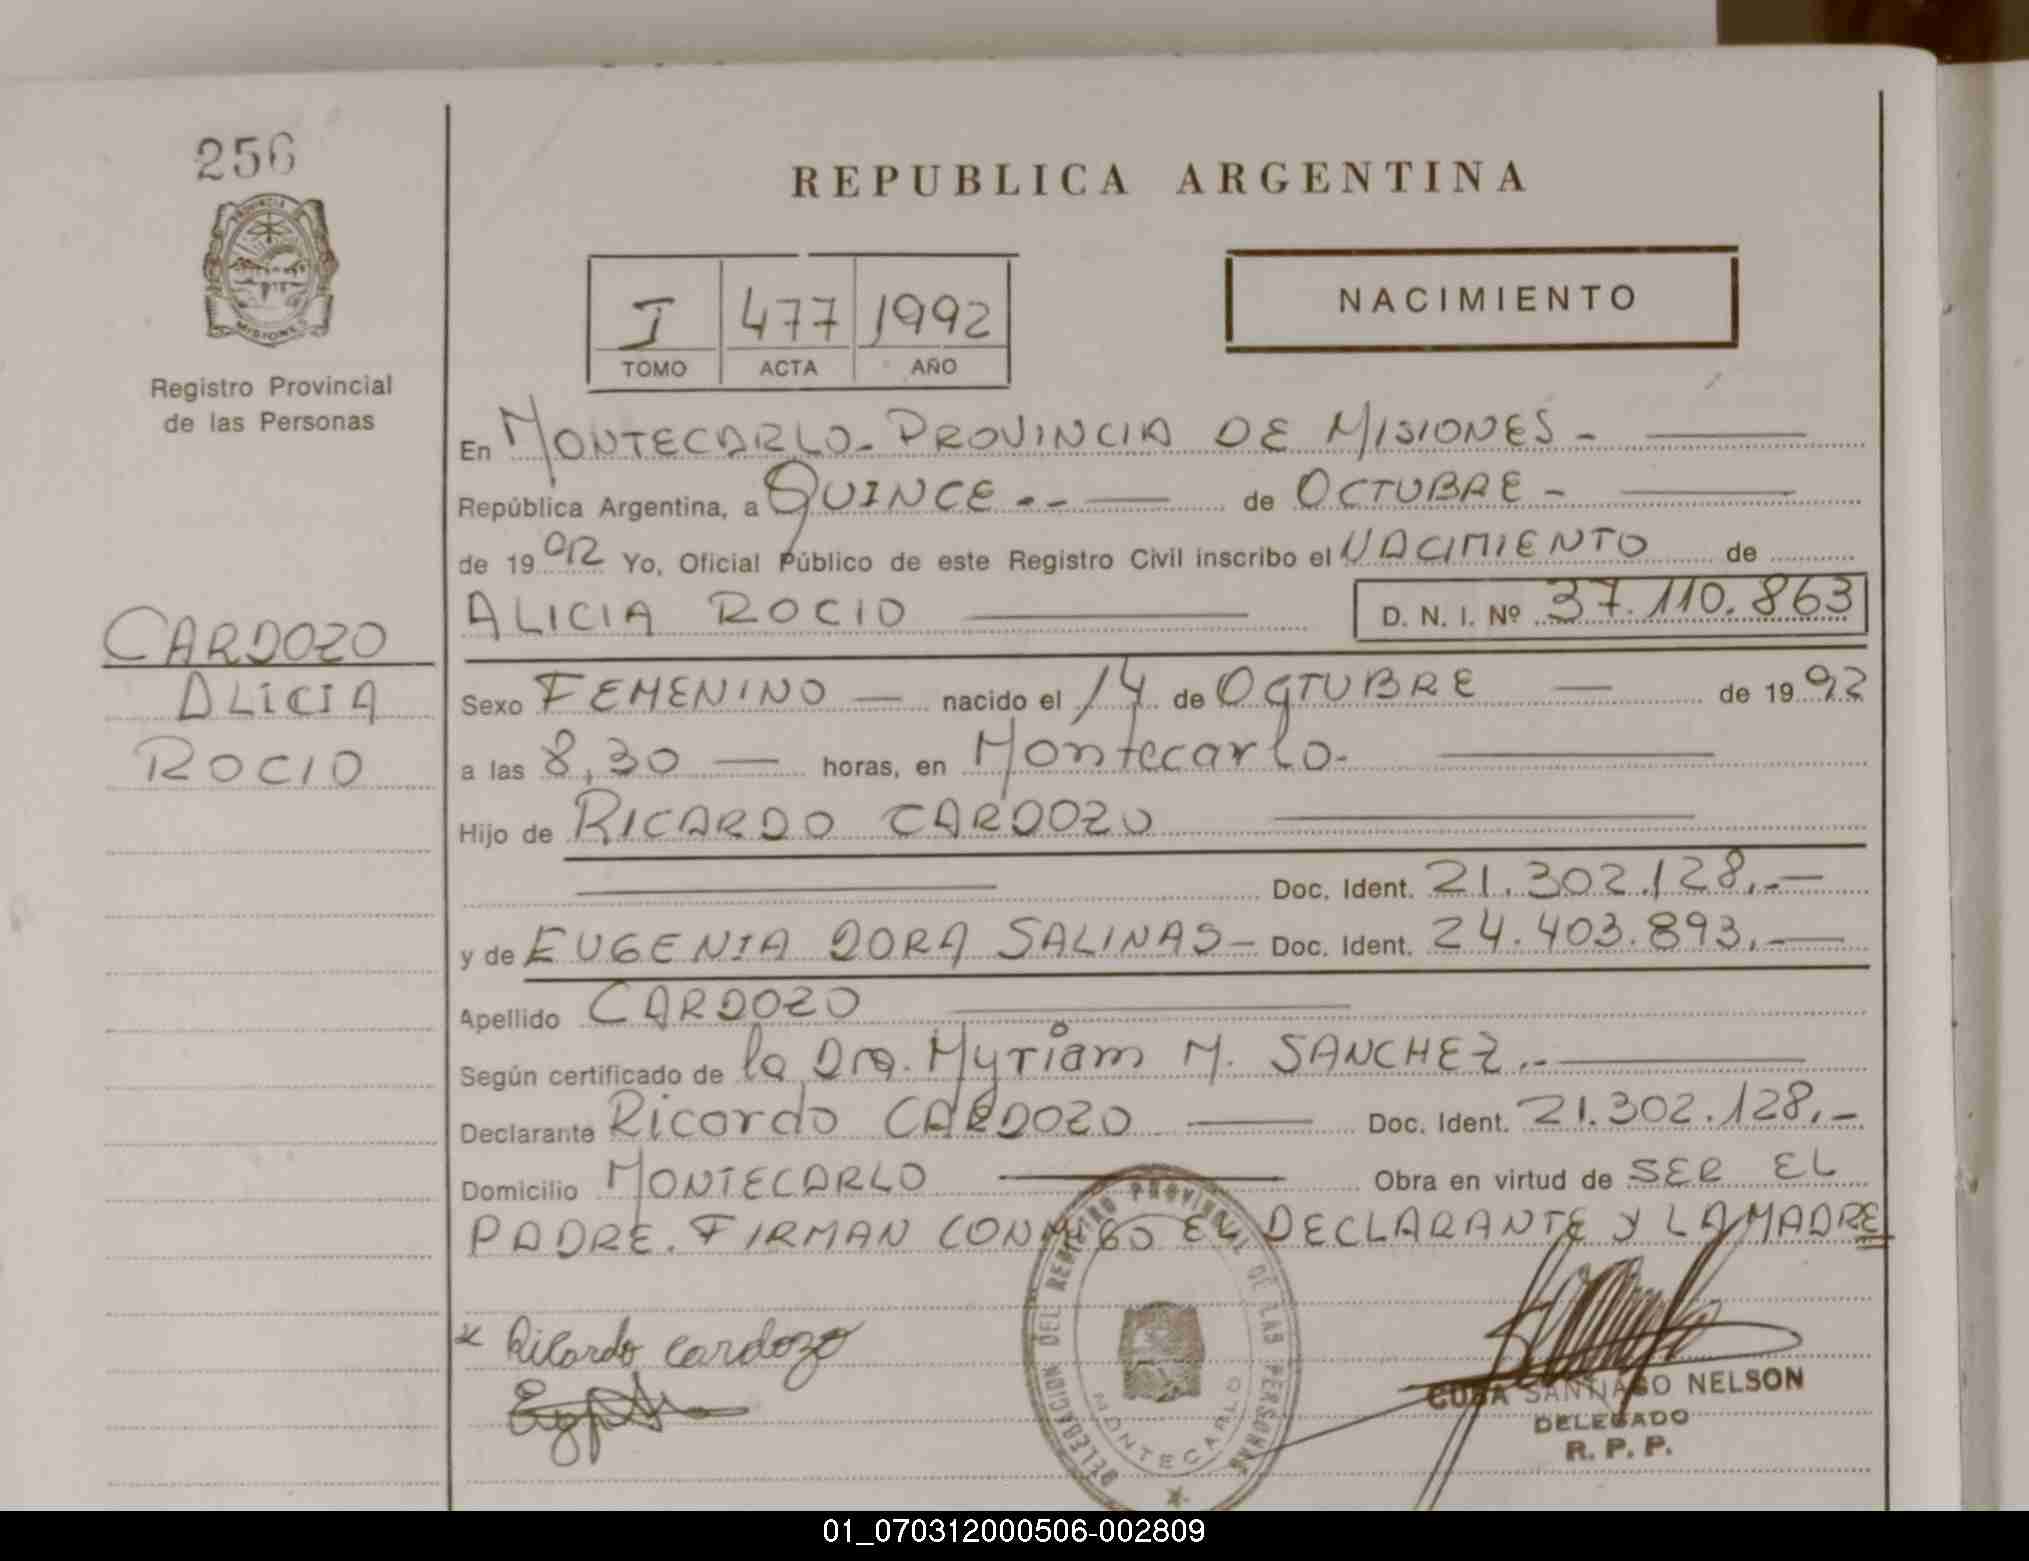 256
PROVINCIA
MISIONES
Registro Provincial
de las Personas
CARDOZO
ALICIA
ROCIO
REPUBLICA ARGENTINA
I 477 1992
TOMO ACTA AÑO
NACIMIENTO
En MONTECARLO - PROVINCIA DE MISIONES -
República Argentina, a QUINCE -- de OCTUBRE -
de 1992 Yo, Oficial Público de este Registro Civil inscribo el NACIMIENTO de
ALICIA ROCIO D. N. I. Nº 37.110.863
Sexo FEMENINO — nacido el 14 de OCTUBRE — de 1992
a las 8,30 — horas, en Montecarlo.
Hijo de RICARDO CARDOZO
Doc. Ident. 21.302.128.-
y de EUGENIA DORA SALINAS - Doc. Ident. 24.403.893.-
Apellido CARDOZO
Según certificado de la Dra. Myriam M. SANCHEZ.-
Declarante Ricardo CARDOZO — Doc. Ident. 21.302.128.-
Domicilio MONTECARLO — Obra en virtud de SER EL
PADRE. FIRMAN CONMIGO EL DECLARANTE Y LA MADRE
DELEGACION DEL REGISTRO PROVINCIAL DE LAS PERSONAS
MONTECARLO
x Ricardo Cardozo
CUBA SANTIAGO NELSON
DELEGADO
R. P. P.
01_070312000506-002809